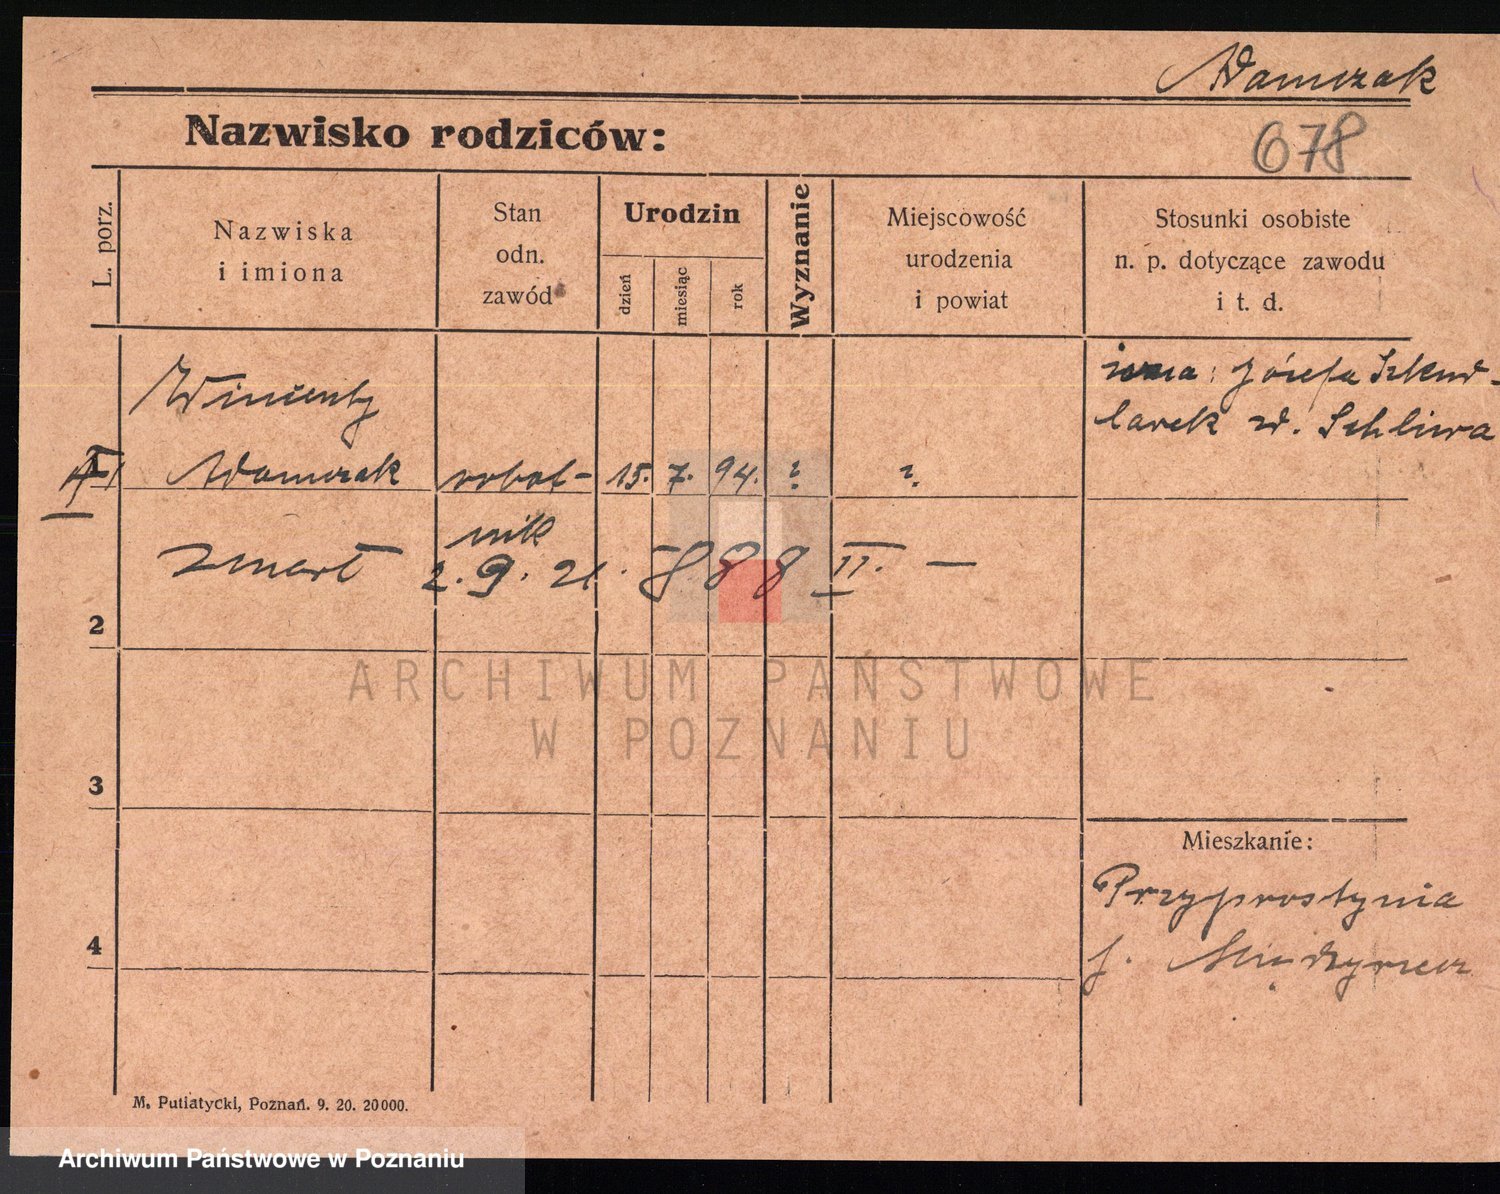 Adamczak
Nazwisko rodziców:
678
L. porz.
Nazwiska
i imiona
Stan
odn.
zawód
Urodzin
dzień
miesiąc
rok
Wyznanie
Miejscowość
urodzenia
i powiat
Stosunki osobiste
n. p. dotyczące zawodu
i t. d.
Wincenty
Józefa Szkud-
larek zd. Schliwa
1
Adamczak robot- 15. 7. 94. ? ?
nik
zmarł 2. 9. 21. 888 II. —
2
ARCHIWUM PAŃSTWOWE
W POZNANIU
3
Mieszkanie:
Przyprostynia
4
p. Międzyrzecz
M. Putiatycki, Poznań. 9. 20. 20000.
Archiwum Państwowe w Poznaniu